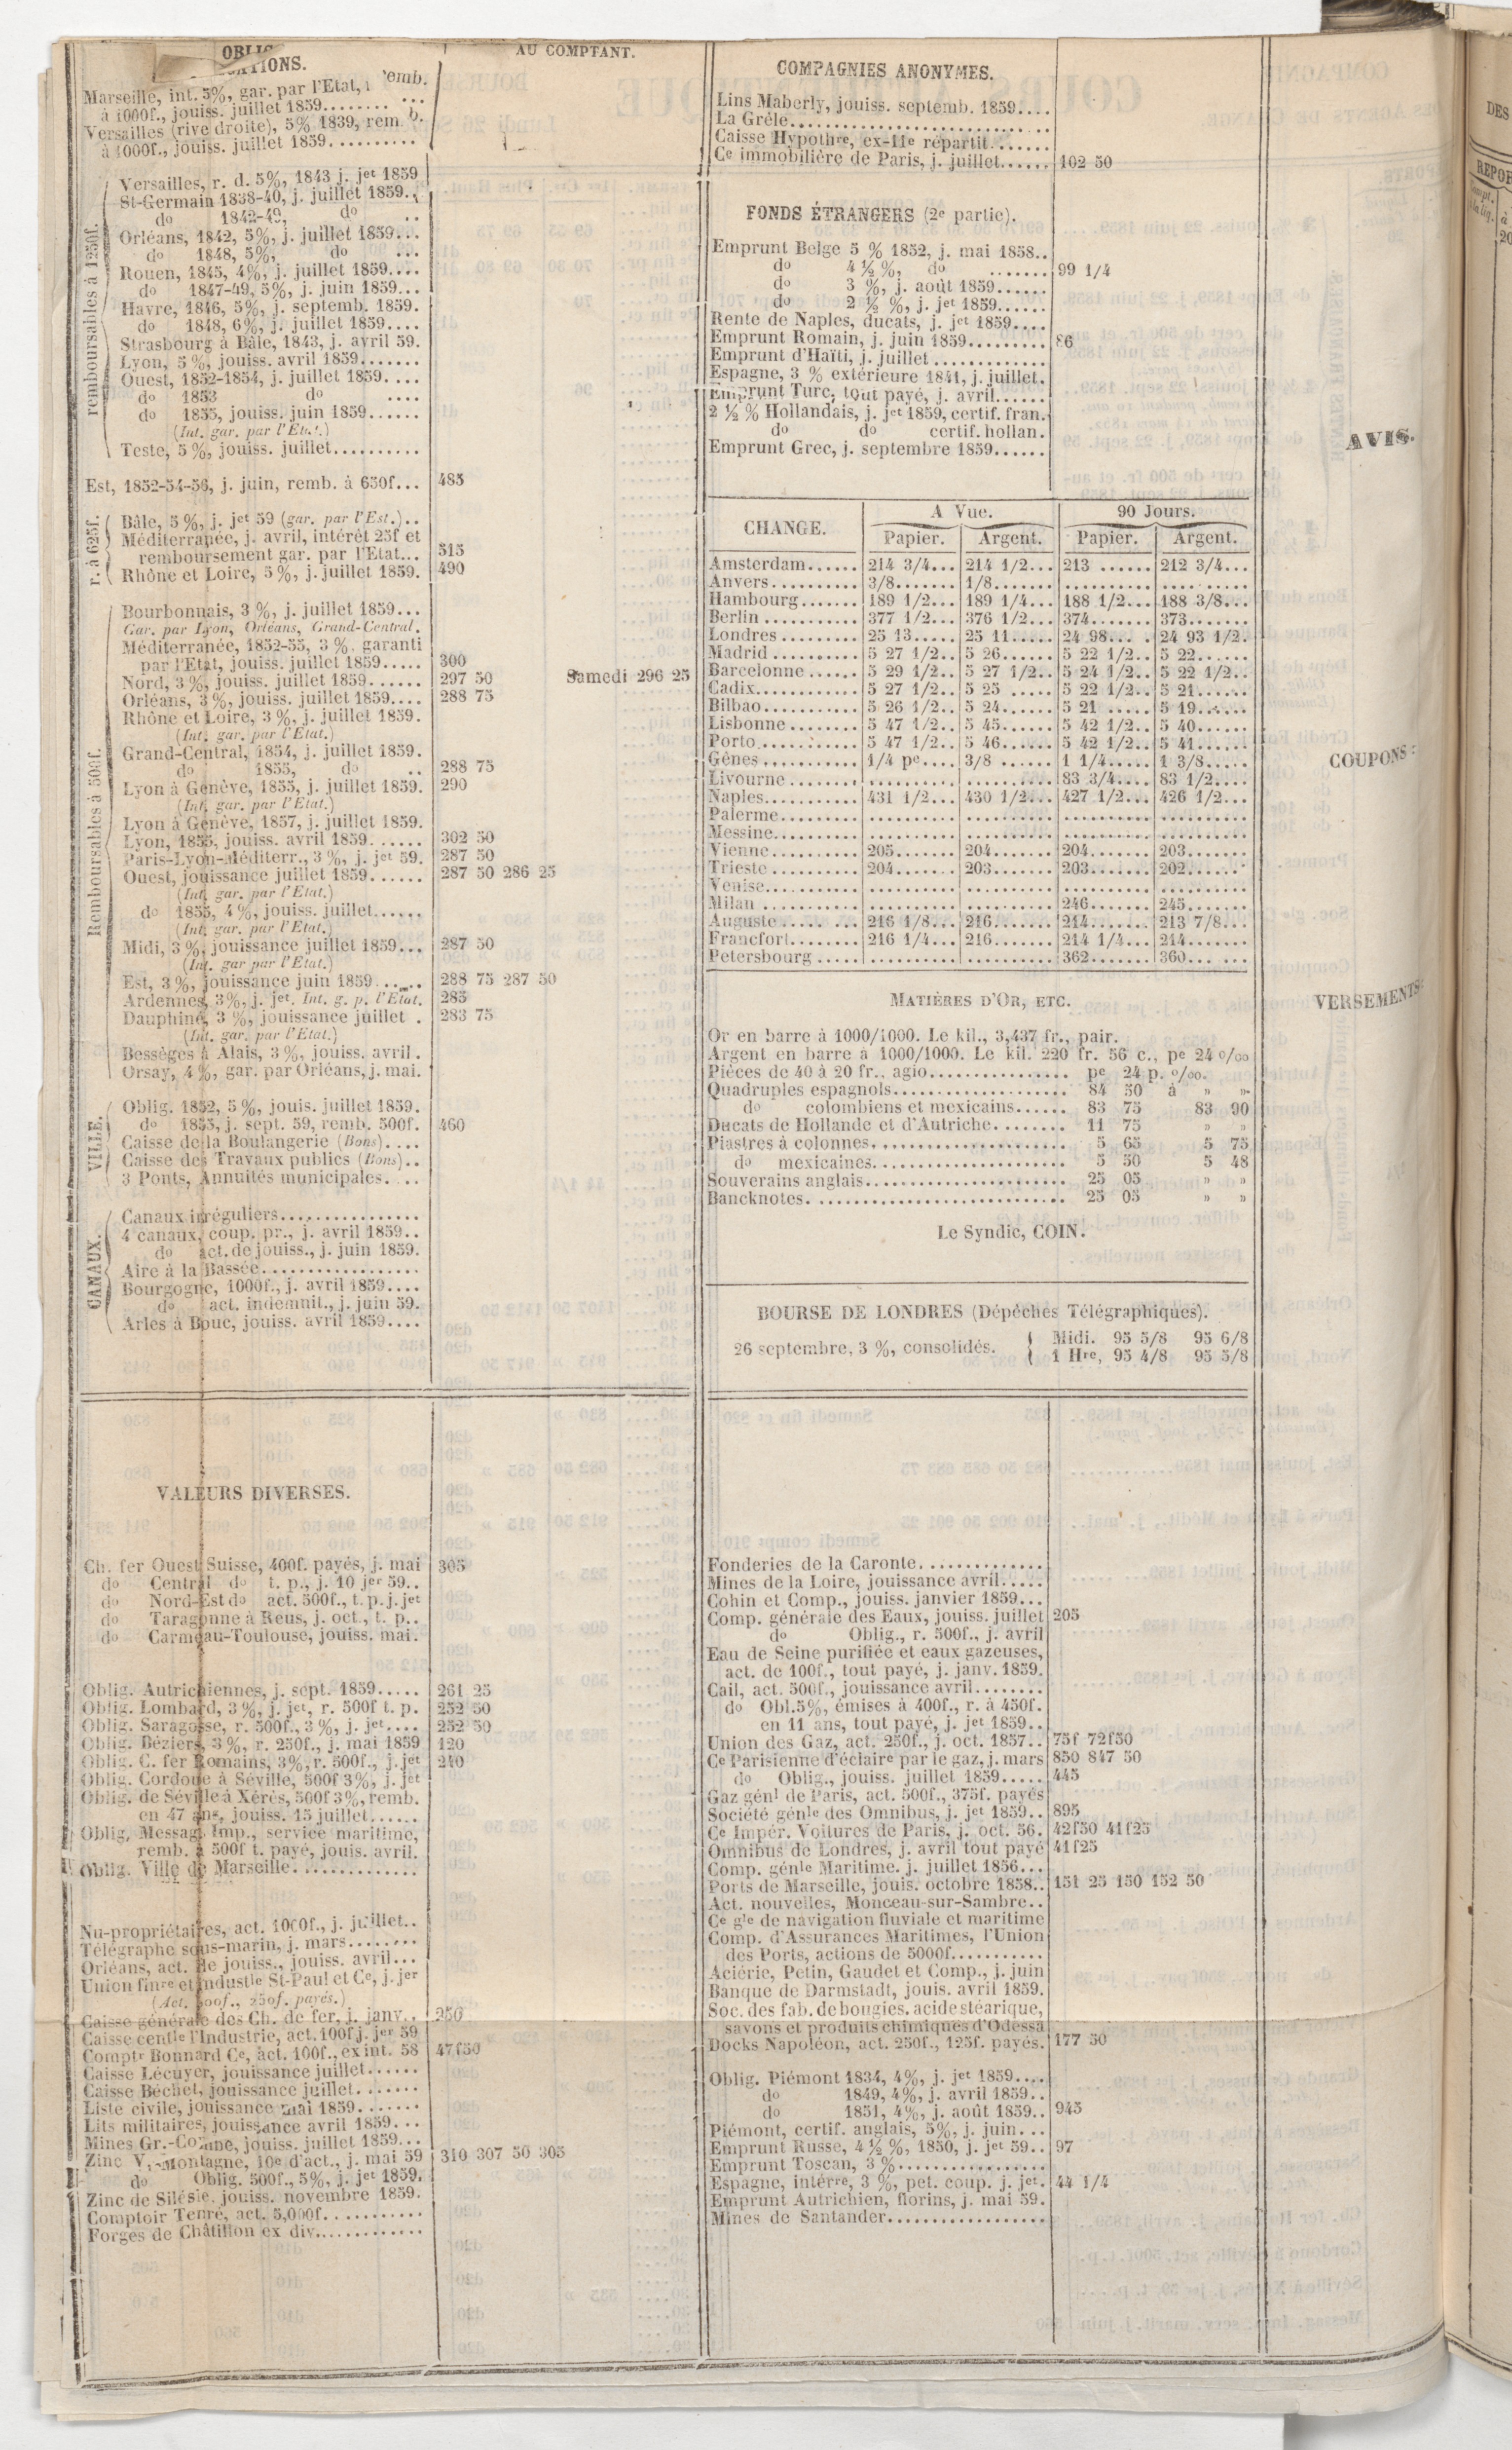 OBLIGATIONS.
AU COMPTANT.
Marseille, int. 5%, gar. par l'Etat, remb.
à 1000f., jouiss. juillet 1859........ ...
Versailles (rive droite), 5% 1839, remb.
à 1000f., jouiss. juillet 1859..........
remboursables à 1250f.
Versailles, r. d. 5%, 1843 j. jet 1859
St-Germain 1838-40, j. juillet 1859..
do 1842-49, do ..
Orléans, 1842, 5%, j. juillet 1859...
do 1848, 5%, do ...
Rouen, 1845, 4%, j. juillet 1859....
do 1847-49, 5%, j. juin 1859...
Havre, 1846, 5%, j. septemb. 1859.
do 1848, 6%, j. juillet 1859....
Strasbourg à Bâle, 1843, j. avril 59.
Lyon, 5%, jouiss. avril 1859.......
Ouest, 1852-1854, j. juillet 1859....
do 1853 do ....
do 1855, jouiss. juin 1859......
(Int. gar. par l'Etat.)
Teste, 5%, jouiss. juillet..........
Est, 1852-54-56, j. juin, remb. à 650f... 485
r. à 625f.
Bâle, 5%, j. jet 59 (gar. par l'Est.)..
Méditerranée, j. avril, intérêt 25f et
remboursement gar. par l'Etat... 515
Rhône et Loire, 5%, j. juillet 1859. 490
Remboursables à 500f.
Bourbonnais, 3%, j. juillet 1859...
Gar. par Lyon, Orléans, Grand-Central.
Méditerranée, 1852-55, 3%. garanti
par l'Etat, jouiss. juillet 1859..... 300
Nord, 3%, jouiss. juillet 1859...... 297 50 Samedi 296 25
Orléans, 3%, jouiss. juillet 1859.... 288 75
Rhône et Loire, 3%, j. juillet 1859.
(Int. gar. par l'Etat.)
Grand-Central, 1854, j. juillet 1859.
do 1855, do .. 288 75
Lyon à Genève, 1855, j. juillet 1859. 290
(Int. gar. par l'Etat.)
Lyon à Genève, 1857, j. juillet 1859.
Lyon, 1855, jouiss. avril 1859...... 302 50
Paris-Lyon-Méditerr., 3%, j. jet 59. 287 50
Ouest, jouissance juillet 1859...... 287 50 286 25
(Int. gar. par l'Etat.)
do 1855, 4%, jouiss. juillet......
(Int. gar. par l'Etat.)
Midi, 3%, jouissance juillet 1859... 287 50
(Int. gar par l'Etat.)
Est, 3%, jouissance juin 1859...... 288 75 287 50
Ardennes, 3%, j. jet. Int. g. p. l'Etat. 285
Dauphiné, 3%, jouissance juillet . 283 75
(Int. gar. par l'Etat.)
Bessèges à Alais, 3%, jouiss. avril.
Orsay, 4%, gar. par Orléans, j. mai.
VILLE.
Oblig. 1852, 5%, jouis. juillet 1859.
do 1855, j. sept. 59, remb. 500f. 460
Caisse de la Boulangerie (Bons)....
Caisse des Travaux publics (Bons)..
3 Ponts, Annuités municipales....
CANAUX.
Canaux irréguliers................
4 canaux, coup. pr., j. avril 1859..
do act. de jouiss., j. juin 1859.
Aire à la Bassée..................
Bourgogne, 1000f., j. avril 1859....
do act. indemnit., j. juin 59.
Arles à Bouc, jouiss. avril 1859....
VALEURS DIVERSES.
Ch. fer Ouest Suisse, 400f. payés, j. mai 305
do Central do t. p., j. 10 jer 59..
do Nord-Est do act. 500f., t. p. j. jet
do Taragonne à Reus, j. oct., t. p..
do Carmeau-Toulouse, jouiss. mai.
Oblig. Autrichiennes, j. sept. 1859..... 261 25
Oblig. Lombard, 3%, j. jet, r. 500f t. p. 252 50
Oblig. Saragosse, r. 500f., 3%, j. jet.... 252 50
Oblig. Béziers, 3%, r. 250f., j. mai 1859 120
Oblig. C. fer Romains, 3%, r. 500f., j. jet 240
Oblig. Cordoue à Séville, 500f 3%, j. jet
Oblig. de Séville à Xérès, 500f 3%, remb.
en 47 ans, jouiss. 15 juillet......
Oblig. Messag. Imp., service maritime,
remb. à 500f t. payé, jouis. avril.
Oblig. Ville de Marseille.............
Nu-propriétaires, act. 1000f., j. juillet..
Télégraphe sous-marin, j. mars........
Orléans, act. de jouiss., jouiss. avril...
Union finre et industle St-Paul et Ce, j. jer
(Act. 500f., 250f. payés.)
Caisse générale des Ch. de fer, j. janv.. 250
Caisse centle l'Industrie, act. 100f j. jer 59
Comptr Bonnard Ce, act. 100f., ex int. 58 47f50
Caisse Lécuyer, jouissance juillet......
Caisse Béchet, jouissance juillet.......
Liste civile, jouissance mai 1859.......
Lits militaires, jouissance avril 1859...
Mines Gr.-Combe, jouiss. juillet 1859...
Zinc V.-Montagne, 10e d'act., j. mai 59 310 307 50 305
do Oblig. 500f., 5%, j. jet 1859.
Zinc de Silésie, jouiss. novembre 1859.
Comptoir Terré, act. 5,000f...........
Forges de Châtillon ex div............
COMPAGNIES ANONYMES.
Lins Maberly, jouiss. septemb. 1859....
La Grêle.............................
Caisse Hypothre, ex-11e répartit.......
Ce immobilière de Paris, j. juillet...... 102 50
FONDS ÉTRANGERS (2e partie).
Emprunt Belge 5 % 1852, j. mai 1858..
do 4 ½ %, do ....... 99 1/4
do 3 %, j. août 1859......
do 2 ½ %, j. jet 1859......
Rente de Naples, ducats, j. jet 1859....
Emprunt Romain, j. juin 1859......... 86
Emprunt d'Haïti, j. juillet.............
Espagne, 3 % extérieure 1841, j. juillet.
Emprunt Turc, tout payé, j. avril......
2 ½ % Hollandais, j. jet 1859, certif. fran.
do do certif. hollan.
Emprunt Grec, j. septembre 1859......
CHANGE. A Vue. 90 Jours.
Papier. Argent. Papier. Argent.
Amsterdam...... 214 3/4... 214 1/2... 213 ...... 212 3/4...
Anvers.......... 3/8....... 1/8....... ......... .........
Hambourg....... 189 1/2... 189 1/4... 188 1/2... 188 3/8...
Berlin ........... 377 1/2... 376 1/2... 374....... 373.......
Londres ......... 25 13..... 25 11..... 24 98.... . 24 93 1/2.
Madrid .......... 5 27 1/2.. 5 26...... 5 22 1/2.. 5 22......
Barcelonne ...... 5 29 1/2.. 5 27 1/2.. 5 24 1/2.. 5 22 1/2..
Cadix............ 5 27 1/2.. 5 25 ..... 5 22 1/2.. 5 21......
Bilbao........... 5 26 1/2.. 5 24...... 5 21 ..... 5 19......
Lisbonne ........ 5 47 1/2.. 5 45...... 5 42 1/2.. 5 40......
Porto............ 5 47 1/2.. 5 46...... 5 42 1/2.. 5 41......
Gênes ........... 1/4 pe.... 3/8 ...... 1 1/4..... 1 3/8.....
Livourne......... .......... .......... 83 3/4.... 83 1/2....
Naples........... 431 1/2... 430 1/2... 427 1/2... 426 1/2...
Palerme.......... .......... .......... .......... ..........
Messine.......... .......... .......... .......... ..........
Vienne........... 205....... 204....... 204....... 203.......
Trieste .......... 204....... 203....... 203....... 202.......
Venise........... .......... .......... .......... ..........
Milan ............ .......... .......... 246....... 245.......
Auguste ..... ... 216 1/8... 216....... 214....... 213 7/8...
Francfort........ 216 1/4... 216....... 214 1/4... 214.......
Petersbourg ..... .......... .......... 362....... 360... ...
MATIÈRES D'OR, ETC.
Or en barre à 1000/1000. Le kil., 3,437 fr., pair.
Argent en barre à 1000/1000. Le kil. 220 fr. 56 c., pe 24 o/oo
Pièces de 40 à 20 fr., agio............... pe 24 p. o/oo.
Quadruples espagnols.................... 84 50 à » »
do colombiens et mexicains...... 83 75 83 90
Ducats de Hollande et d'Autriche........ 11 75 » »
Piastres à colonnes..................... 5 65 5 75
do mexicaines..................... 5 50 5 48
Souverains anglais...................... 25 05 » »
Bancknotes............................ 25 05 » »
Le Syndic, COIN.
BOURSE DE LONDRES (Dépêches Télégraphiques).
26 septembre, 3 %, consolidés. Midi. 95 5/8 95 6/8
1 Hre, 95 4/8 95 5/8
Fonderies de la Caronte..............
Mines de la Loire, jouissance avril.....
Cohin et Comp., jouiss. janvier 1859...
Comp. générale des Eaux, jouiss. juillet 205
do Oblig., r. 500f., j. avril
Eau de Seine purifiée et eaux gazeuses,
act. de 100f., tout payé, j. janv. 1859.
Cail, act. 500f., jouissance avril........
do Obl. 5%, émises à 400f., r. à 450f.
en 11 ans, tout payé, j. jet 1859..
Union des Gaz, act. 250f., j. oct. 1857.. 75f 72f50
Ce Parisienne d'éclaire par le gaz, j. mars 850 847 50
do Oblig., jouiss. juillet 1859..... 445
Gaz génl de Paris, act. 500f., 375f. payés
Société génle des Omnibus, j. jet 1859.. 895
Ce Impér. Voitures de Paris, j. oct. 56. 42f50 41f25
Omnibus de Londres, j. avril tout payé 41f25
Comp. génle Maritime. j. juillet 1856...
Ports de Marseille, jouis. octobre 1858.. 151 25 150 152 50
Act. nouvelles, Monceau-sur-Sambre..
Ce gle de navigation fluviale et maritime
Comp. d'Assurances Maritimes, l'Union
des Ports, actions de 5000f...........
Aciérie, Petin, Gaudet et Comp., j. juin
Banque de Darmstadt, jouis. avril 1859.
Soc. des fab. de bougies, acide stéarique,
savons et produits chimiques d'Odessa
Docks Napoléon, act. 250f., 125f. payés. 177 50
Oblig. Piémont 1834, 4%, j. jet 1859....
do 1849, 4%, j. avril 1859..
do 1851, 4%, j. août 1859.. 945
Piémont, certif. anglais, 5%, j. juin...
Emprunt Russe, 4 ½ %, 1850, j. jet 59.. 97
Emprunt Toscan, 3 %.................
Espagne, intérre, 3 %, pet. coup. j. jet. 44 1/4
Emprunt Autrichien, florins, j. mai 59.
Mines de Santander..................
AVIS.
COUPONS:
VERSEMENTS:
DES
REPOR